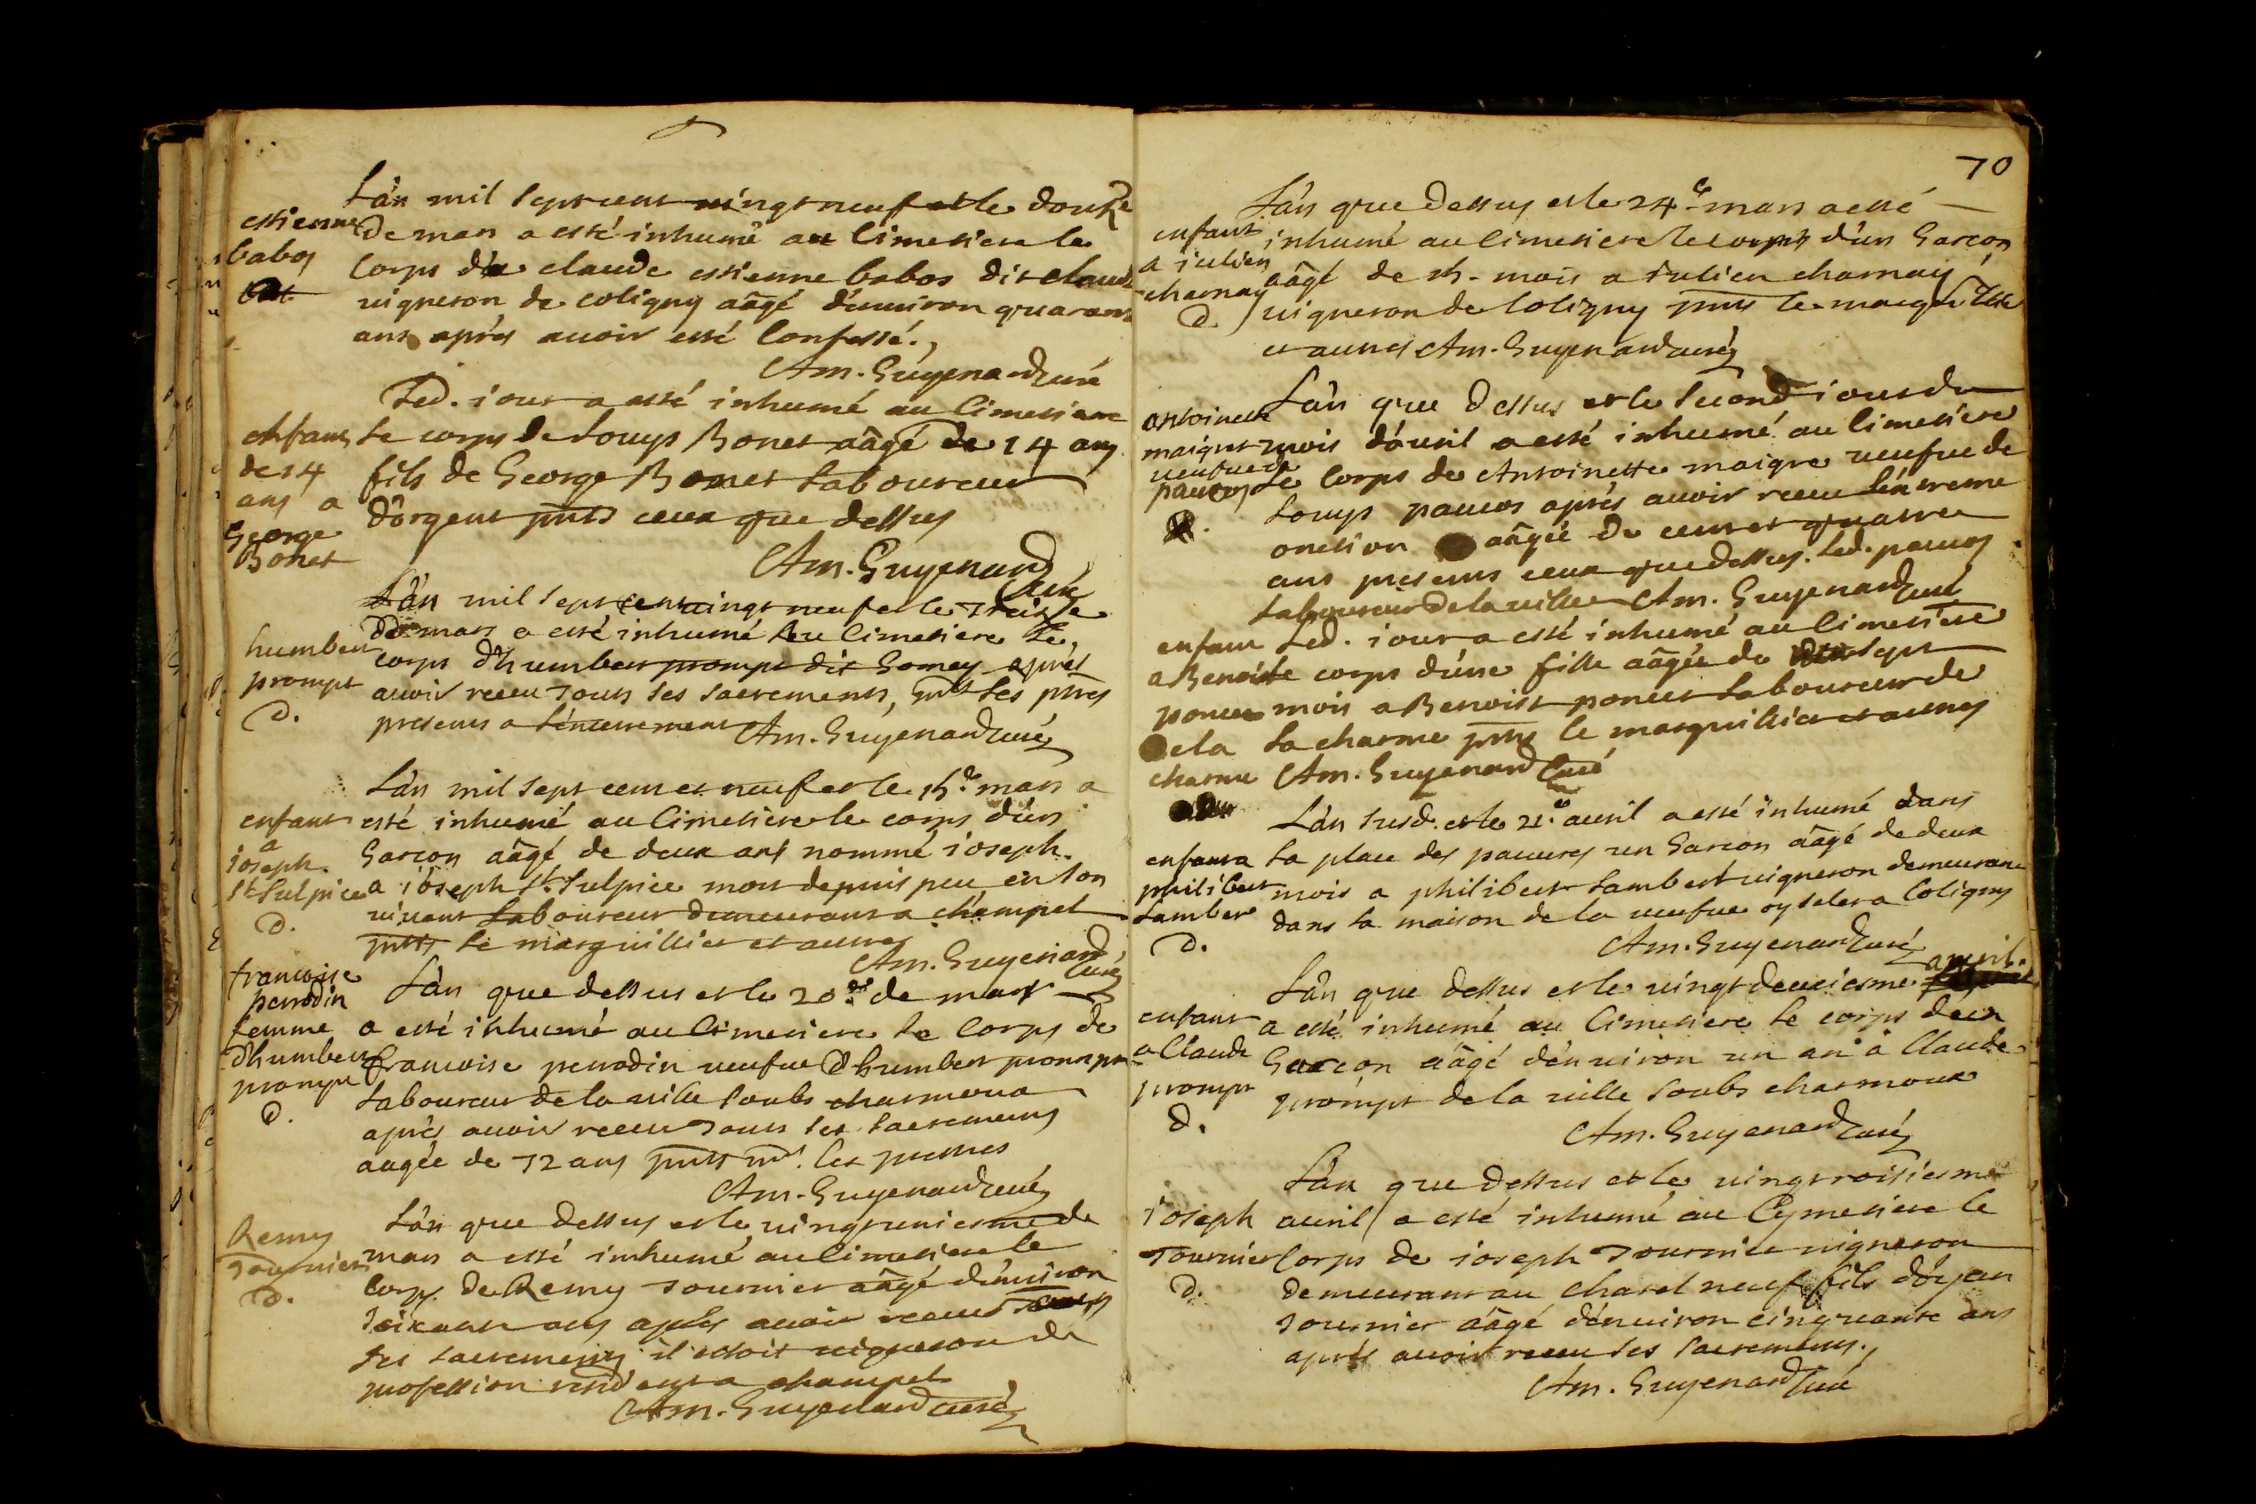 L'an mil sept cent vingt neuf et le douze
estienne
babos
de mars a esté inhumé au cimetiere le
corps de claude estienne babos dit claude
vigneron de coligny aâgé d'environ quarante
ans apres avoir esté confessé.
Am. Guyenard curé
Led. iour a esté inhumé au cimetiere
enfant
de 14
ans a
George
Bonet
le corps de Louys Bonet aâgé de 14 ans
fils de George Bonet laboureur
d'orgent pnts ceux que dessus
Am. Guyenard
curé
L'an mil sept cent vingt neuf et le treize
humbert
prompt
d.
de mars a esté inhumé au cimetiere le
corps d'humbert prompt dit Gomey apres
avoir receu tous les sacrements, les pbres
presents a l'enterrement Am. Guyenard curé
L'an mil sept cent et neuf et le 15.e mars a
enfant
a
ioseph
st Sulpice
d.
esté inhumé au cimetiere le corps d'un
Garcon aâgé de deux ans nommé ioseph.
a ioseph st. Sulpice mort depuis peu en son
vivant laboureur demeurant a chempel
pnts le marguillier et autres
Am. Guyenard
curé
francoise
perrodin
femme
d'humbert
prompt
d.
L'an que dessus et le 20.e de mars
a esté inhumé au cimetiere le corps de
francoise perrodin veufve d'humbert prompt
laboureur de la ville soubs charmoux
apres avoir receu tous les sacrements
aagée de 72 ans pnts mrs. les prestres
Am. Guyenard curé
Remy
Tournier
d.
L'an que dessus et le vingt uniesme de
mars a esté inhumé au cimetiere le
corps de Remy Tournier aâgé d'environ
soixante ans apres avoir receu
les sacrements il estoit vigneron de
profession resident a champel
Am. Guyenard curé
70
L'an que dessus et le 24.e mars a esté
enfant
a iulien
charnay
d.
inhumé au cimetiere le corps d'un Garcon
aâgé de 15. mois a iulien charnay
vigneron de coligny pnts le
et autres Am. Guyenard curé
L'an que dessus et le second iour du
antoinette
maigret
veufve de
pauvos
mois d'avril a esté inhumé au cimetiere
le corps de Antoinette maigre veufve de
Louys pauvos apres avoir receu l'extreme
onction aâgée de cent et quatre
ans presents ceux que dessus. Led. pauvos
laboureur de la ville Am. Guyenard curé
enfant
a Benoist
poncet
de la
charme
Led. iour a esté inhumé au cimetiere
le corps d'une fille aâgée de sept
mois a Benoist poncet laboureur de
la charme pnts le marguillier et autres
Am. Guyenard curé
L'an susd. et le 21.e avril a esté inhumé dans
enfant a
philibert
Lambert
d.
la place des pauvres un Garcon aâgé de deux
mois a philibert Lambert vigneron demeurant
dans la maison de la veufve oyselet a Coligny
Am. Guyenard curé
L'an que dessus et le vingt deuxiesme avril.
enfant
a Claude
prompt
d.
a esté inhumé au cimetiere le corps d'un
Garcon aâgé d'environ un an a Claude
prompt de la ville soubs charmoux
Am. Guyenard curé
L'an que dessus et le vingt troisiesme
ioseph
Tournier
d.
avril a esté inhumé au Cymetiere le
corps de ioseph Tournier vigneron
demeurant au chatel neuf fils d'oyen
Tournier aâgé d'environ cinquante ans
apres avoir receu les sacrements.
Am. Guyenard curé